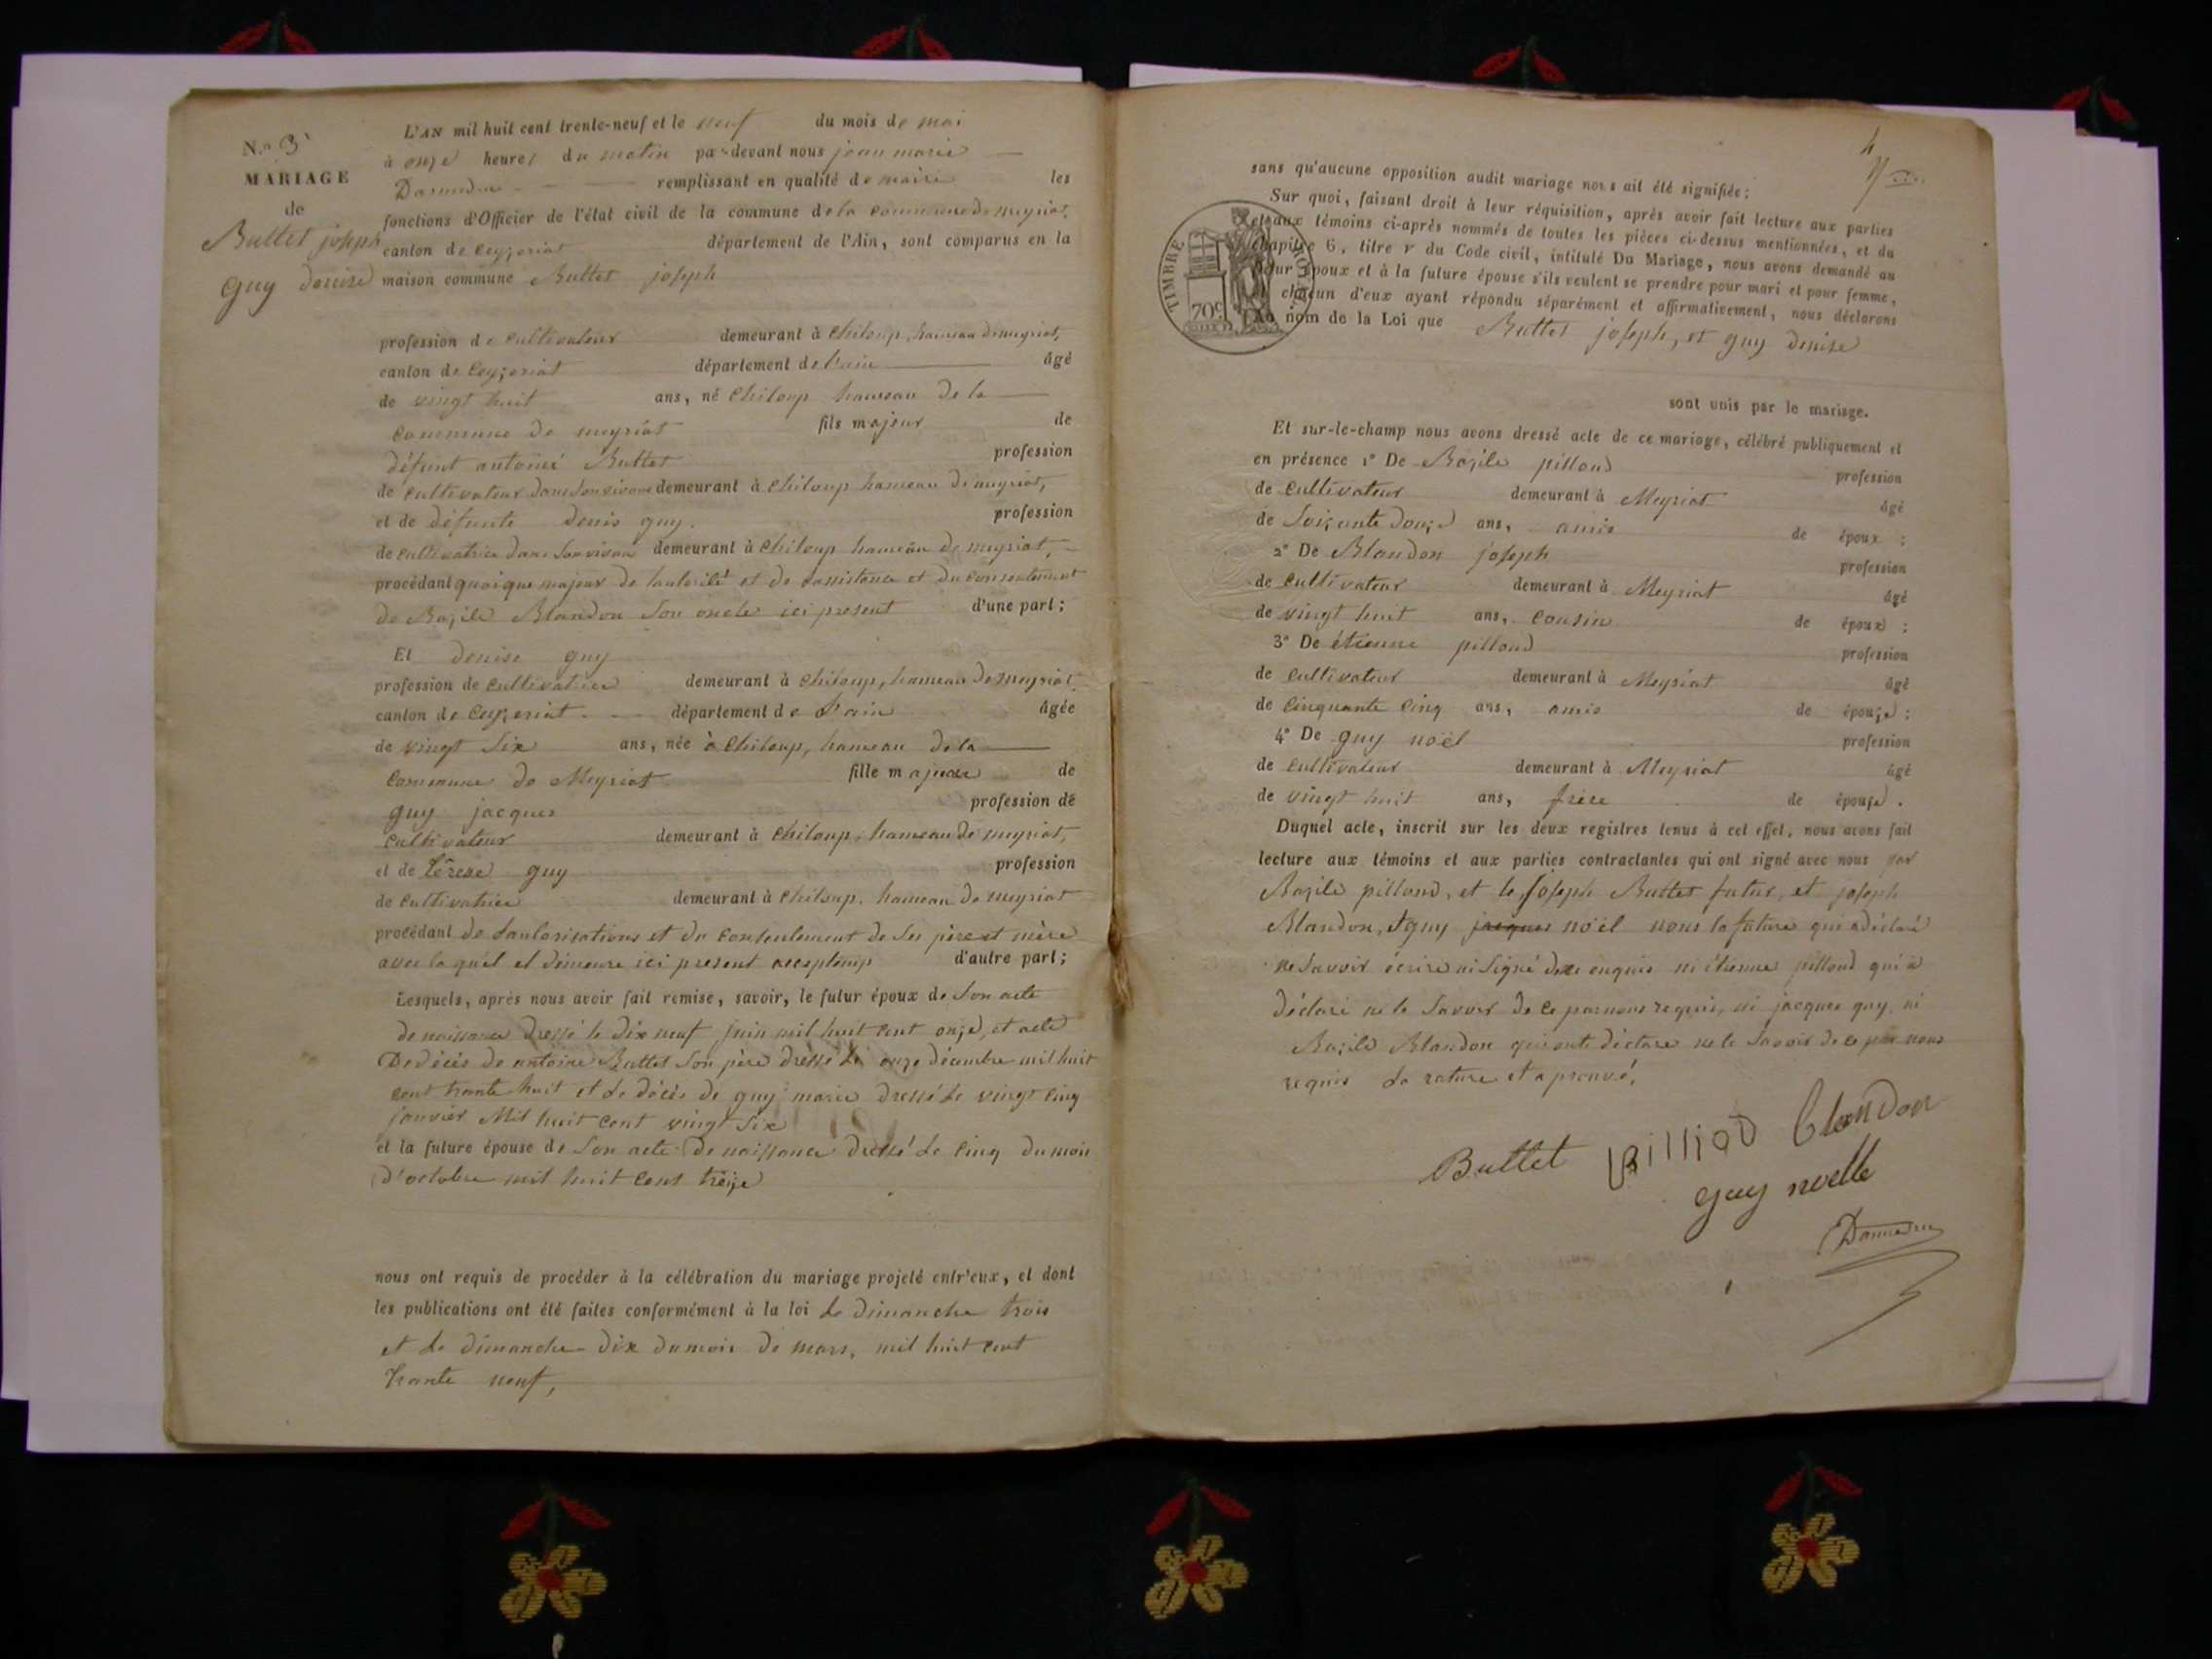 N.o 3
MARIAGE
de
Buttet joseph
guy denise
L'AN mil huit cent trente-neuf et le neuf du mois de mai
à onze heures du matin par-devant nous jean marie
remplissant en qualité de maire les
fonctions d'Officier de l'état civil de la commune de la commune de meyriat,
canton de Ceyzeriat département de l'Ain, sont comparus en la
maison commune Buttet joseph
profession de cultivateur demeurant à chiloup, hameau de meyriat,
canton de Ceyzeriat département de l'ain âgé
de vingt huit ans, né chiloup hameau de la
commune de meyriat fils majeur de
défunt antoine Buttet profession
de cultivateur dans son vivant demeurant à chiloup hameau de meyriat,
et de défunte denis guy. profession
de cultivatrice dans son vivan demeurant à chiloup hameau de meyriat,
procédant quoique majeur de l'autorité et de l'assistance et du consentement
de Bazile Blandon son oncle ici present d'une part ;
Et denise guy
profession de cultivatrice demeurant à chiloup, hameau de meyriat,
canton de Ceyzeriat département de l'ain âgée
de vingt six ans, née à chiloup, hameau de la
commune de Meyriat fille majeure de
guy jacques profession de
cultivateur demeurant à chiloup, hameau de meyriat,
et de térese guy profession
de cultivatrice demeurant à chiloup, hameau de meyriat
procédant de l'autorisations et du consentement de ses père et mère
avec la quel el demeure ici present d'autre part ;
Lesquels, après nous avoir fait remise, savoir, le futur époux de son acte
de naissance dressé le dix neuf juin mil huit cent onze, et acte
De décès de antoine Buttet son père dressé le onze décembre mil huit
cent trante huit et le décès de guy marie dressé le vingt cinq
janvier Mil huit cent vingt six
et la future épouse de son acte de naissance dressé le cinq du mois
d'octobre mil huit cent treize
nous ont requis de procéder à la célébration du mariage projeté entr'eux, et dont
les publications ont été faites conformément à la loi le dimanche trois
et le dimanche dix du mois de mars, mil huit cent
trante neuf,
4
sans qu'aucune opposition audit mariage nous ait été signifiée :
Sur quoi, faisant droit à leur réquisition, après avoir fait lecture aux parties
et aux témoins ci-après nommés de toutes les pièces ci-dessus mentionnées, et du
chapitre 6, titre v du Code civil, intitulé Du Mariage, nous avons demandé au
futur époux et à la future épouse s'ils veulent se prendre pour mari et pour femme,
et chacun d'eux ayant répondu séparément et affirmativement, nous déclarons
Au nom de la Loi que Buttet joseph, et guy denise
TIMBRE ROYAL
70c
sont unis par le mariage.
Et sur-le-champ nous avons dressé acte de ce mariage, célébré publiquement et
en présence 1° De Bazile pilloud profession
de cultivateur demeurant à Meyriat âgé
de soixante douze ans, amis de époux ;
2° De Blandon joseph profession
de cultivateur demeurant à Meyriat âgé
de vingt huit ans, cousin de époux ;
3° De étienne pilloud profession
de cultivateur demeurant à Meyriat âgé
de cinquante cinq ans, amis de épouze ;
4° De guy noël profession
de cultivateur demeurant à Meyriat âgé
de vingt huit ans, frère de épouze.
Duquel acte, inscrit sur les deux registres tenus à cet effet, nous avons fait
lecture aux témoins et aux parties contractantes qui ont signé avec nous par
Bazile pilloud, et le joseph Buttet futur, et joseph
Blandon, et guy jacques noël nous la future qui a déclaré
ne savoir écrire ni signé de ce enquis ni étienne pilloud qui a
déclaré ne le savoir de ce par nous requis, ni jacques guy, ni
Bazile Blandon qui onts déclare ne le savoir de ce par nous
requis la rature et aprouvé,
Buttet pilliod blandon
guy noelle